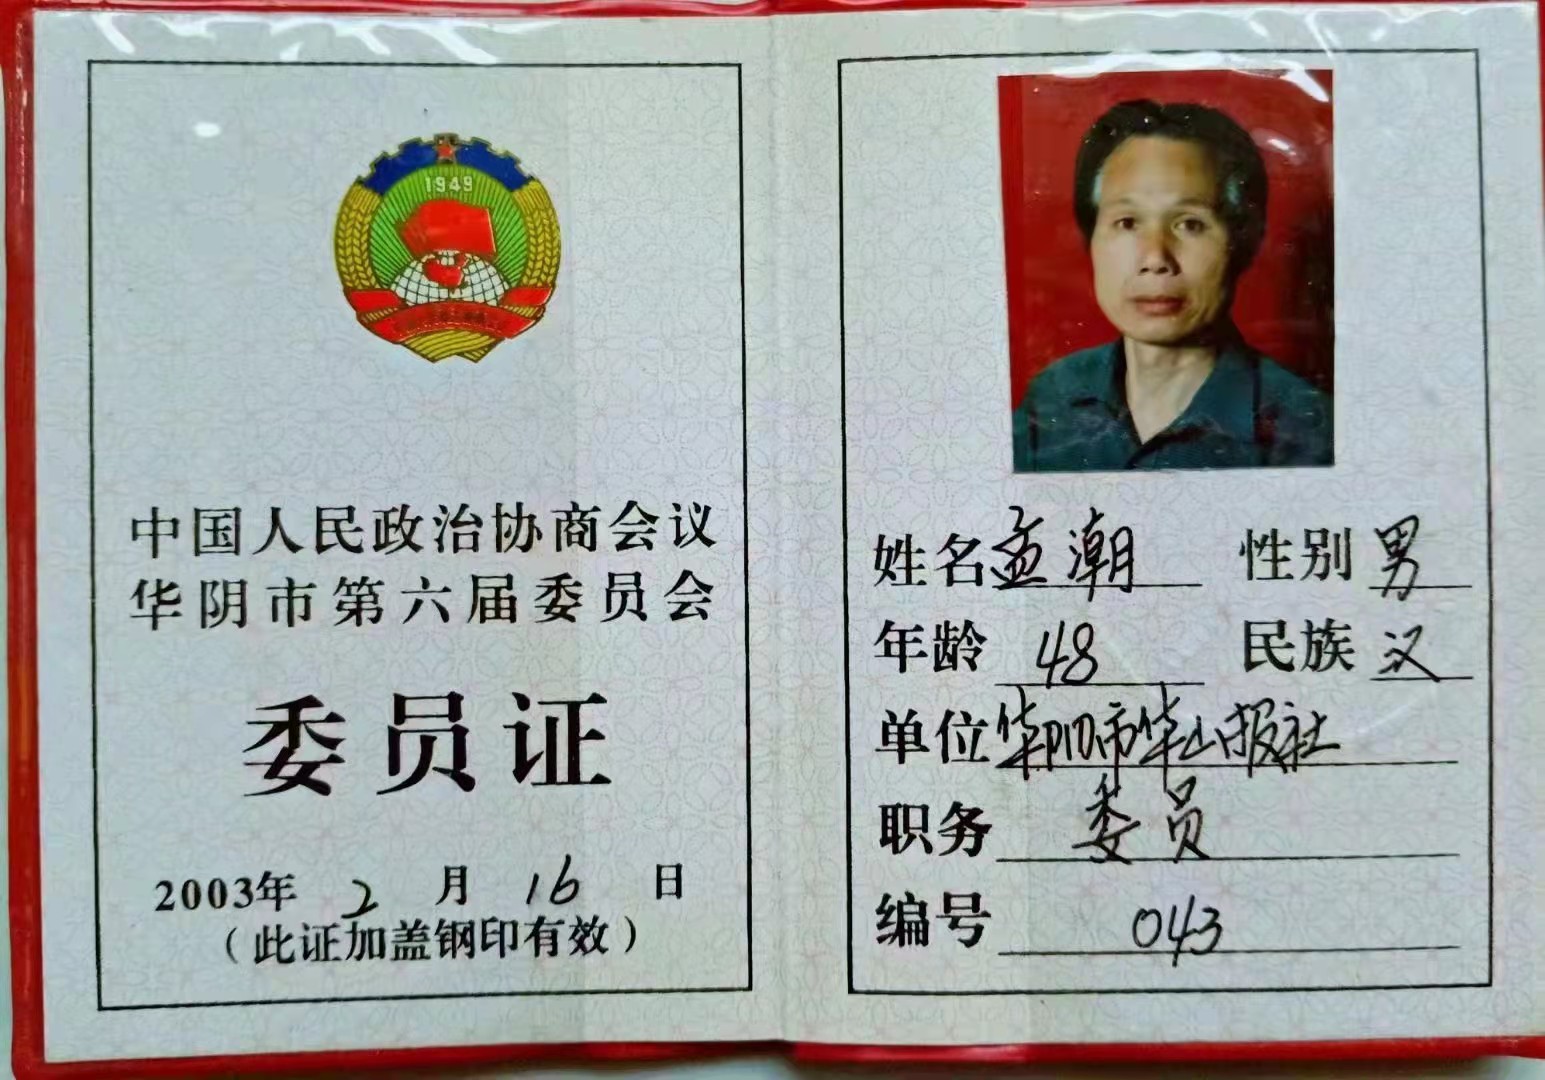 1949
中国人民政治协商会议
华阴市第六届委员会
委员证
2003年 2 月 16 日
（此证加盖钢印有效）
姓名 孟潮 性别 男
年龄 48 民族 汉
单位 华阴市华山报社
职务 委员
编号 043